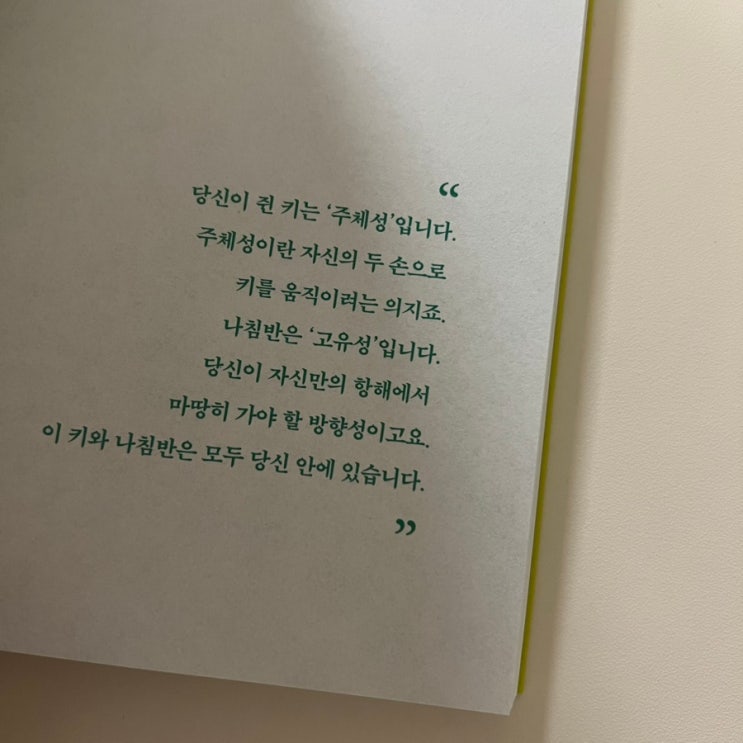 “
당신이 쥔 키는 ‘주체성’입니다.
주체성이란 자신의 두 손으로
키를 움직이려는 의지죠.
나침반은 ‘고유성’입니다.
당신이 자신만의 항해에서
마땅히 가야 할 방향성이고요.
이 키와 나침반은 모두 당신 안에 있습니다.
”